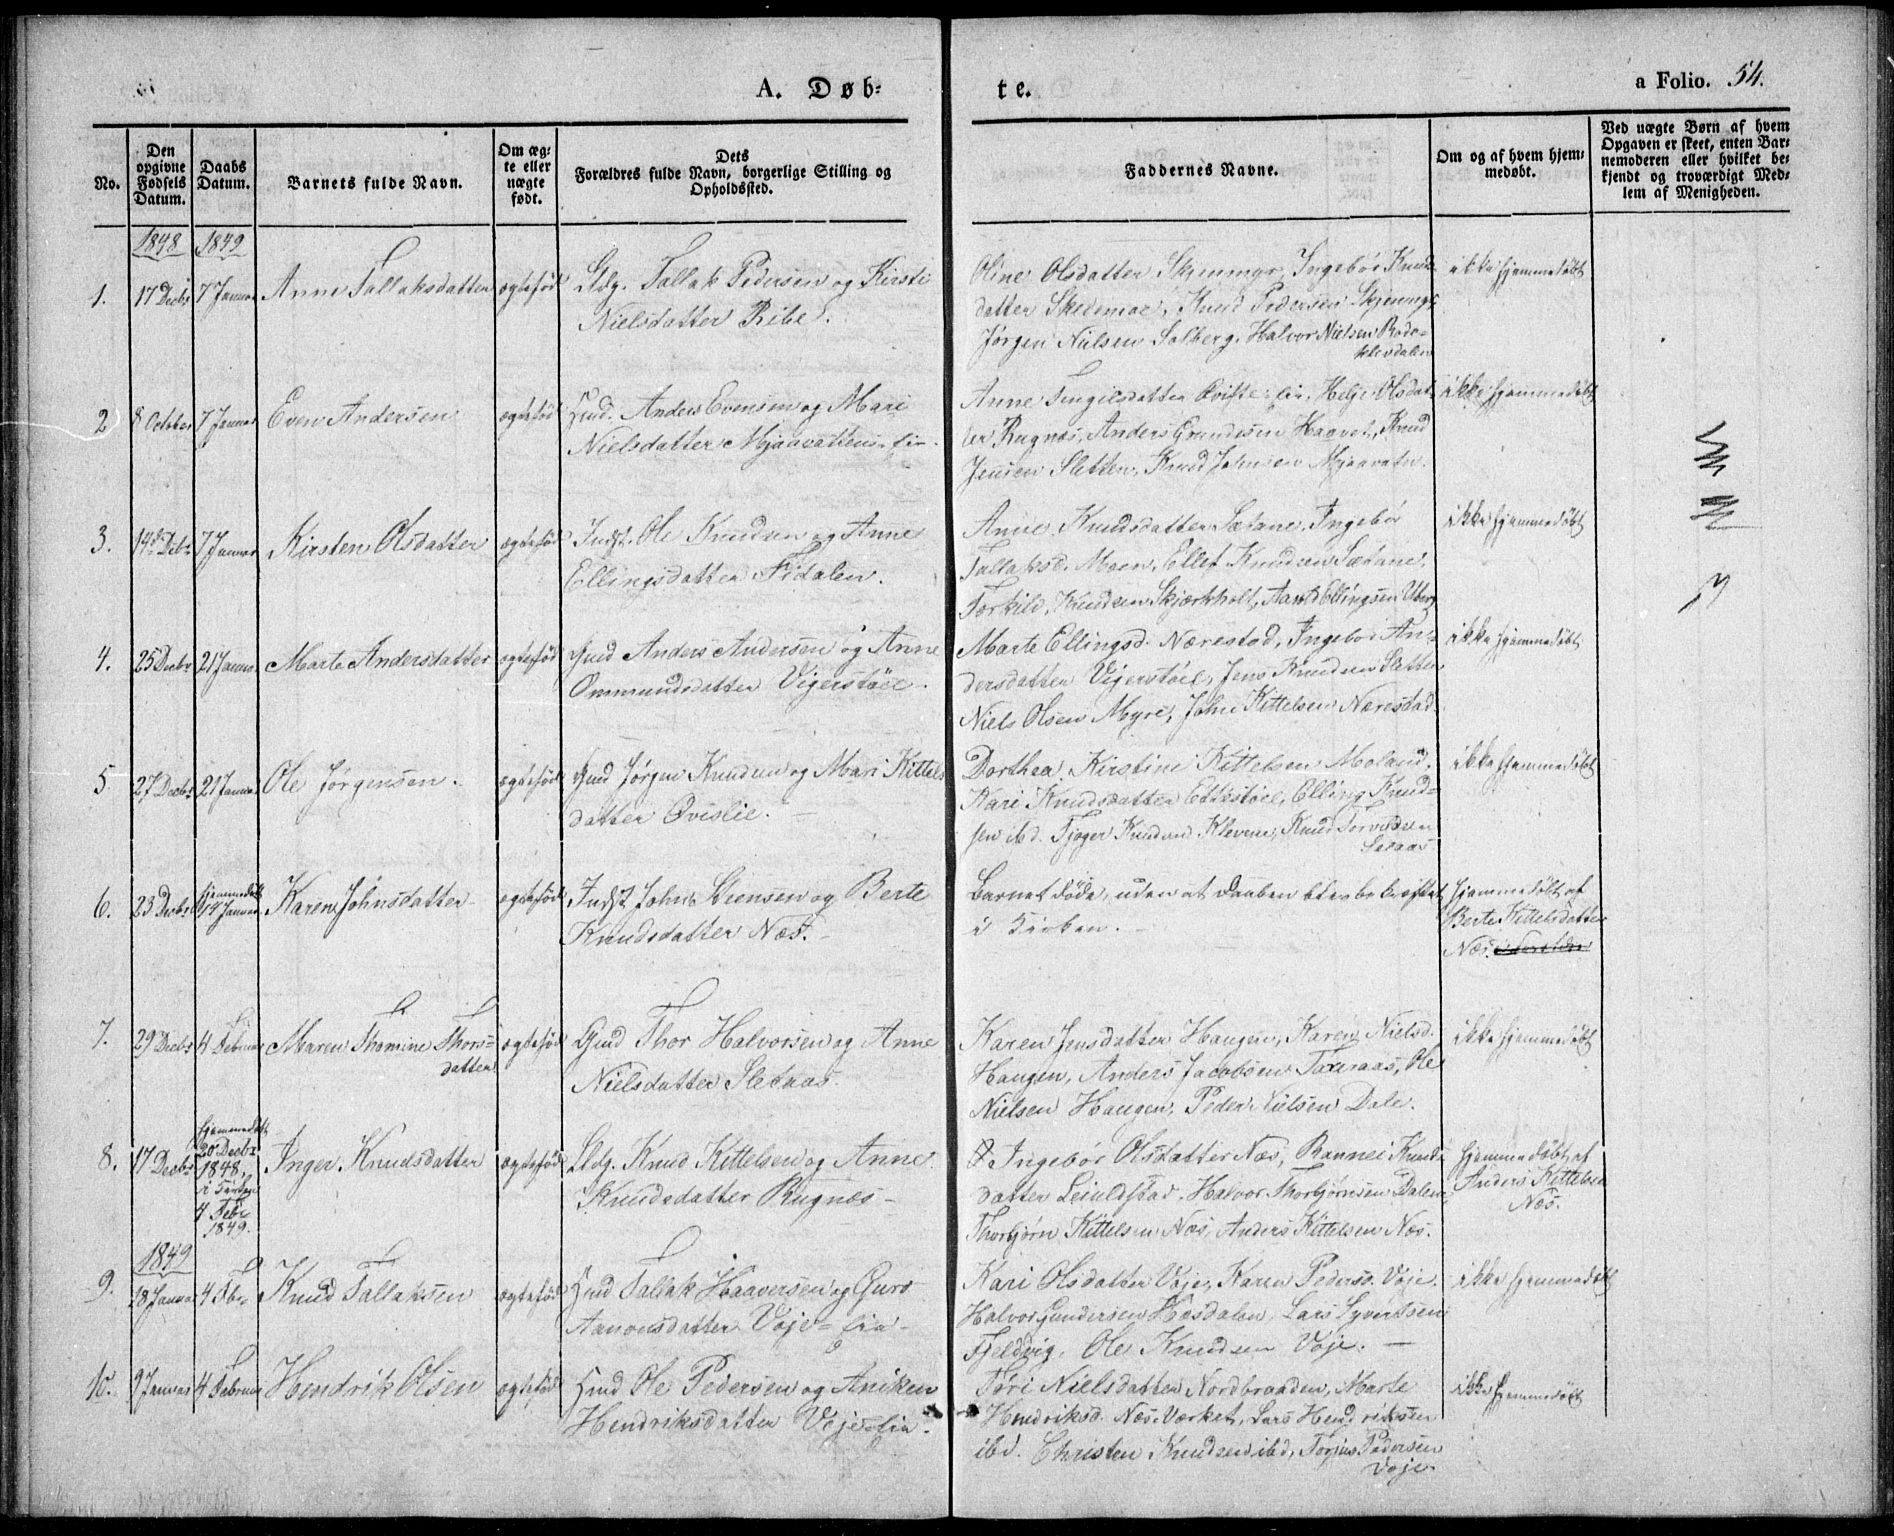 A. Døb-
te.
a Folio. 54.
No.
Den opgivne Fødsels Datum.
Daabs Datum.
Barnets fulde Navn.
Om ægte eller uægte født.
Dets Forældres fulde Navn, borgerlige Stilling og Opholdssted.
Faddernes Navne.
Om og af hvem hjemmedøbt.
Ved uægte Børn af hvem Opgaven er skeet, enten Barnemoderen eller hvilket bekjendt og troværdigt Medlem af Menigheden.
1848 1849
1. 17 Decbr 7 Januar Anne Tallaksdatter ægtefød
Tallak Pedersen og Kirsti
Nielsdatter Ribe.
Oline Olsdatter Skjenmyr, Ingebør Knuds-
datter Skedemoe, Knud Pedersen
Jørgen Nielsen Solberg, Halvor Nielsen
ikke hjemmedøbt
2 8 October 7 Januar Even Andersen ægtefød
Hmd. Anders Evensen og Mari
Nielsdatter Mjaavattens-lia.
Anne Tingilsdatter Qviste-lia, Helje Olsdat-
ter Rugnæs, Anders Haavet, Knud
Jensen Sletten, Knud Johnsen Mjaavatn.
ikke hjemmedøbt
3. 14de Decbr 7 Januar Kirsten Olsdatter ægtefød
Indst. Ole Knudsen og Anne
Ellingsdatter Fidalen.
Anne Knudsdatter Sætane, Ingebør
Tallaksd. Moen, Ellef Knudsen Sætane,
Torkild Knudsen Skjærkholt, Ellingsen
ikke hjemmedøbt
4. 25 Decbr 21 Januar Marte Andersdatter ægtefød
Gmd Anders Andersen og Anne
Ommundsdatter Vigerstøel.
Marte Ellingsd. Nærestad, Ingebør An-
dersdatter Vigerstøel, Jens Knudsen Sletten
Niels Olsen Myre, John Kittelsen Nærestad.
ikke hjemmedøbt
5. 27 Decbr 21 Januar Ole Jørgensen. ægtefød
Gmd Jørgen Knudsen og Mari Kittels
datter Ovislie.
Dorthea Kirstine Kittelsen Moland,
Kari Knudsdatter Ettestøel, Elling Knud-
sen ibd. Tjøger Knudsen Klevene, Knud Torvildsen
Sletaas
ikke hjemmedøbt
6. 23 Decbr hjemmedøbt 14 Januar Karen Johnsdatter ægtefød
Indst John Steensen og Berte
Knudsdatter Næs.
Barnet døde, uden at Daaben blev bekræftet
i Kirken.
hjemmedøbt af
Berte Kittelsdatter
Næs.
7. 29 Decbr 4 Februar Maren Thomine Thors-
datter ægtefød
Gmd Thor Halvorsen og Anne
Nielsdatter Sletaas.
Karen Jensdatter Haugen, Karen Nielsd.
Haugen, Anders Jacobsen Taxeraas, Ole
Nielsen Haugen, Peder Nielsen Dale.
ikke hjemmedøbt
8. 17 Decbr hjemmedøbt
20 Decbr
1848.
i Kirken
4 Febr
1849.
Inger Knudsdatter ægtefød
Knud Kittelsen og Anne
Knudsdatter Rugnæs
Ingebør Olsdatter Næs, Rannei Knuds
datter Leiulfstad, Halvor Thorbjørnsen Dalen,
Thorbjørn Kittelsen Næs, Anders Kittelsen Næs.
hjemmedøbt af
Anders Kittelsen
Næs.
1849
9. 18 Januar 4 Febr Knud Tallaksen ægtefød
Hmd Tallak Haaversen og Guro
Aanonsdatter Voje-lia.
Kari Olsdatter Voje, Karen Pedersd. Voje.
Halvor Gundersen Høsdalen, Lars Syvertsen
Fjeldvig, Ole Knudsen Voje.
ikke hjemmedøbt
10. 9 Januar 4 Februar Hendrik Olsen ægtefød
Hmd Ole Pedersen og Aniken
Hendriksdatter Voje-lia.
Tori Nielsdatter Nordbraaden, Marte
Hendriksd. Næs-Værket, Lars Hendriksen
ibd. Christen Knudsen ibd, Torjus Pedersen
Voje
ikke hjemmedøbt